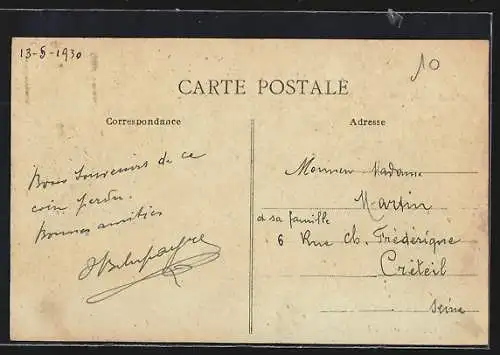 13-5-1930
10
CARTE POSTALE
Correspondance
Bons souvenirs de ce
coin perdu.
Bonnes amitiés
Adresse
Monsieur Madame
Martin
et sa famille
6 Rue Ch. Frédérique
Créteil
Seine